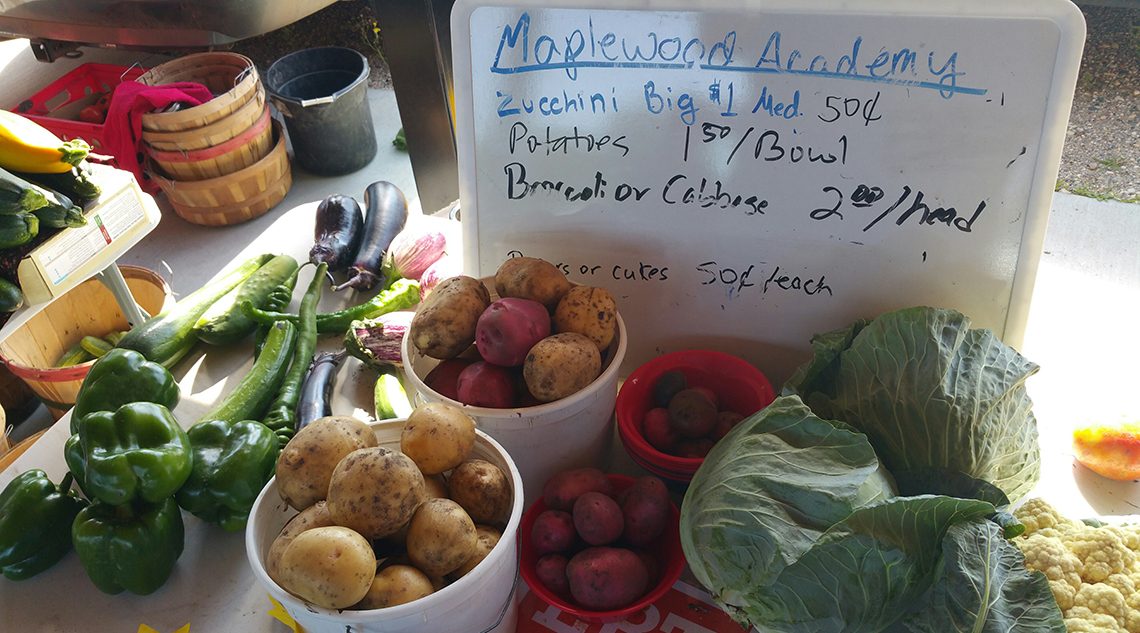 Maplewood Academy
Zucchini Big $1 Med. 50¢
Potatoes 1⁵⁰/Bowl
or Cabbage 2⁰⁰/head
or cukes 50¢/each